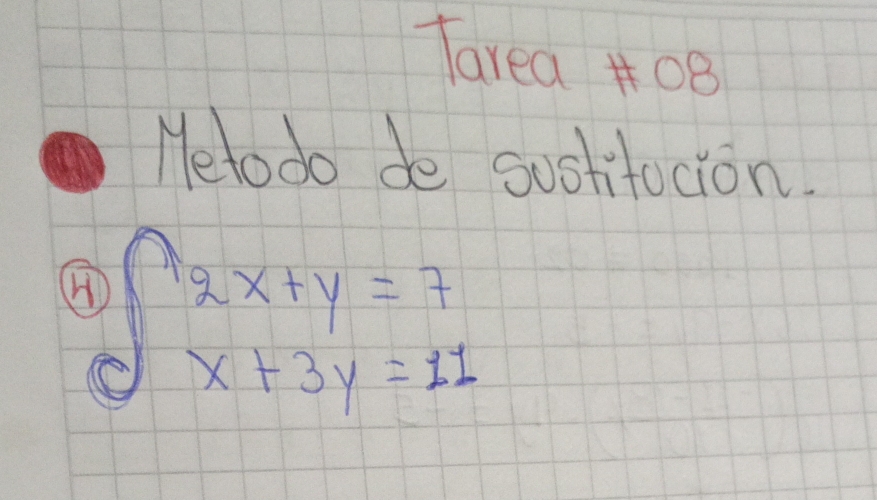 Tarea #08
Metodo de sustitución.
H) 2x+y=7
x+3y=11